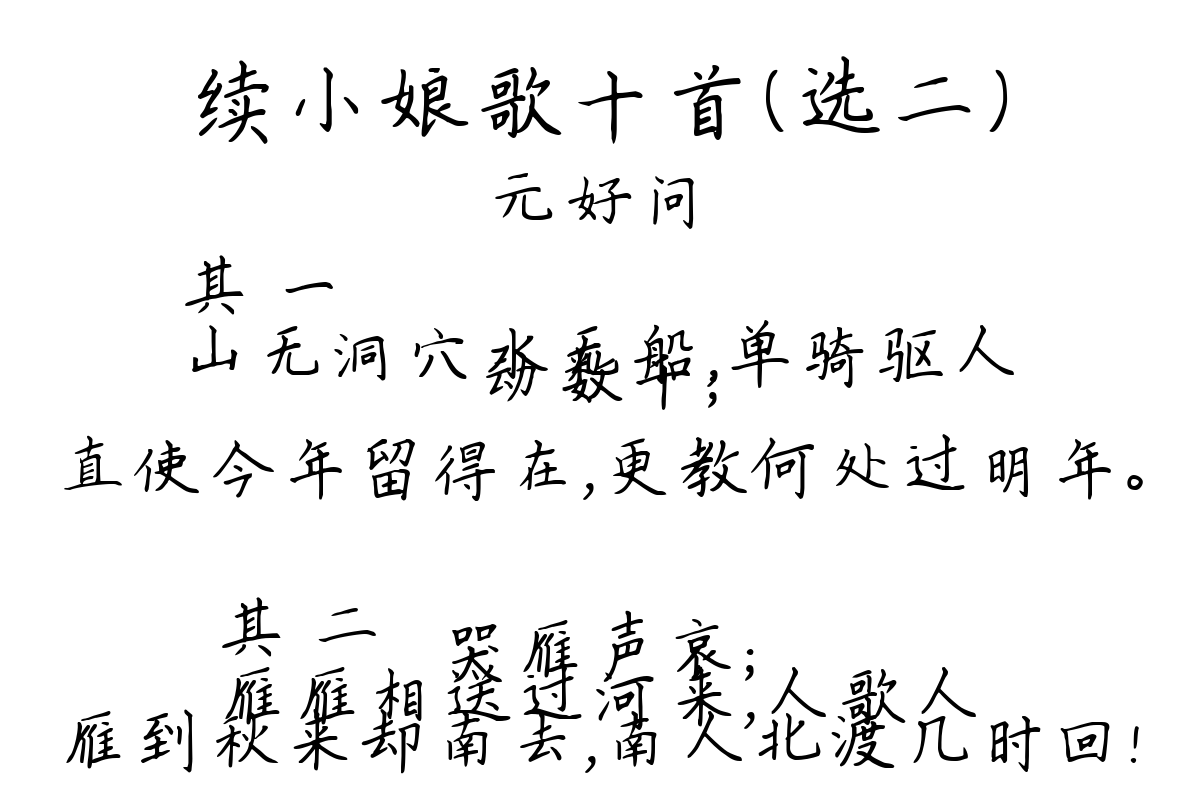 续小娘歌十首(选二)
元好问
其一
山无洞穴水无船,单骑驱人
动数千;
直使今年留得在,更教何处过明年。
其二
雁雁相送过河来,人歌人
哭雁声哀;
雁到秋来却南去,南人北渡几时回!